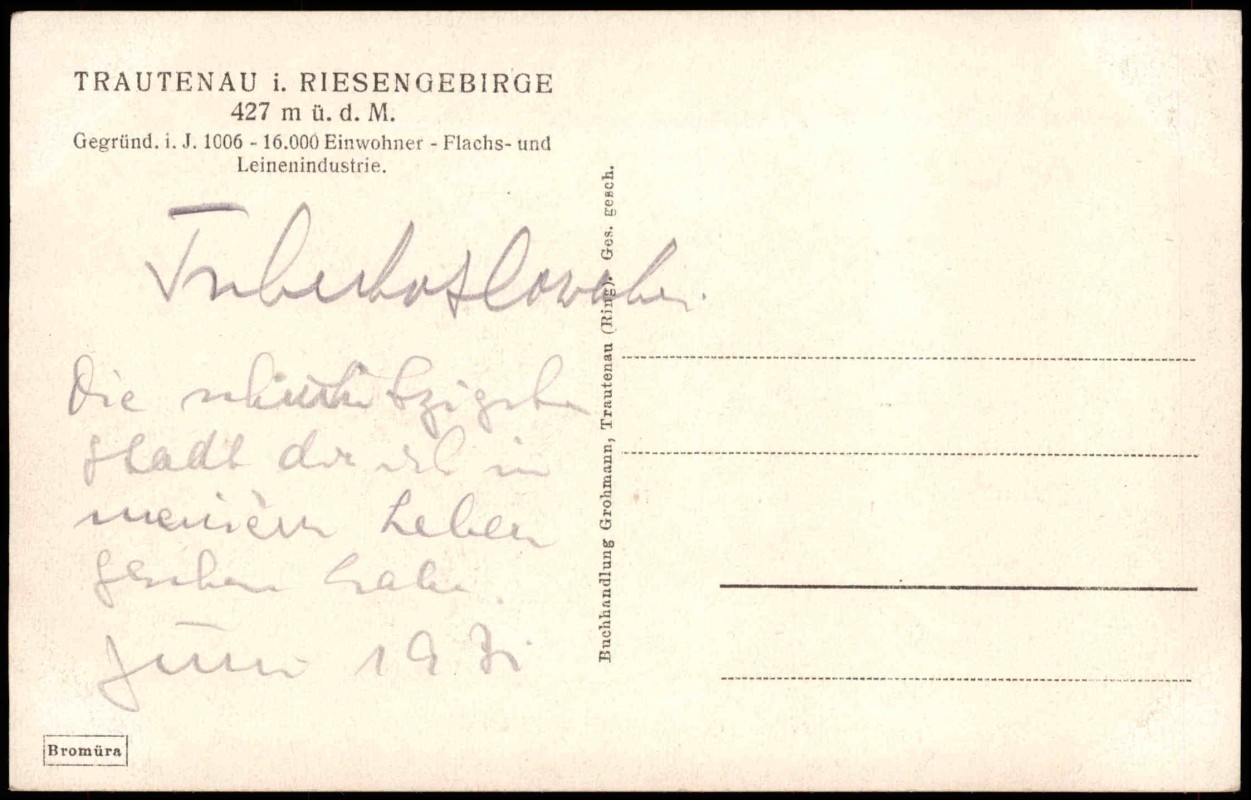 TRAUTENAU i. RIESENGEBIRGE
427 m ü. d. M.
Gegründ. i. J. 1006 - 16.000 Einwohner - Flachs- und
Leinenindustrie.
Die
Stadt die ich in
meinem Leben
gesehen habe.
Juni 1931
Buchhandlung Grohmann, Trautenau (Ring). Ges. gesch.
Bromüra